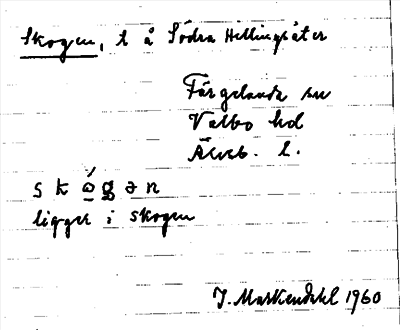 Skogen, t å Södra Hillingsäter
Färgelanda sn
Valbo hd
Älvsb. l.
s k ó g ə n
ligger i skogen
J. Markendahl 1960